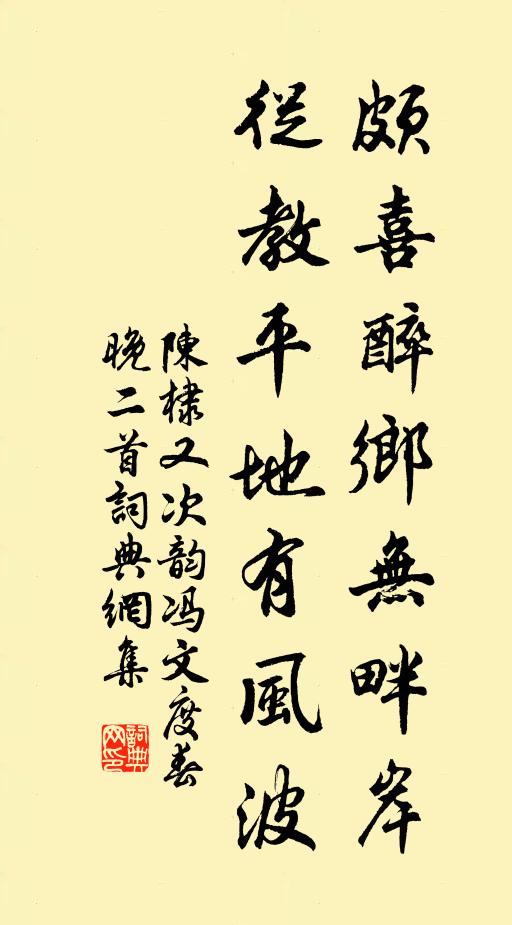 頗喜醉鄉無畔岸
從教平地有風波
陳棣又次韵馮文度春
晚二首詞典網集
詞典
网印